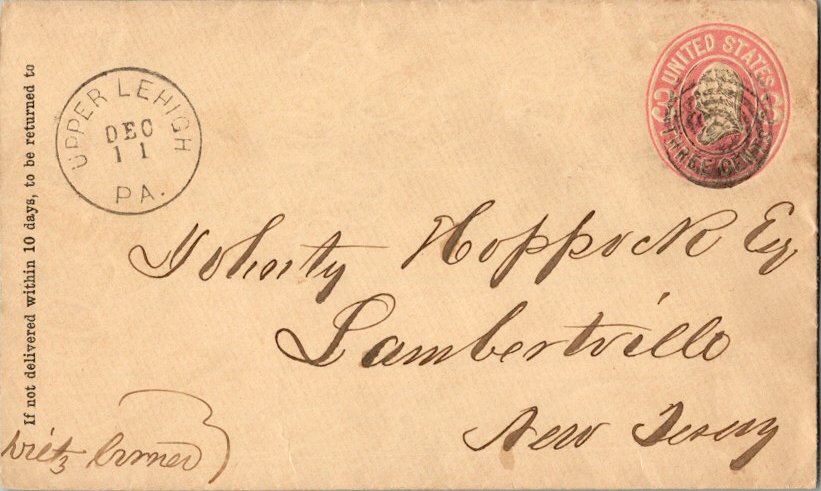 If not delivered within 10 days, to be returned to
UPPER LEHIGH
DEC
11
PA.
UNITED STATES
THREE CENTS
Hoppock Esq
Lambertville
New Jersey